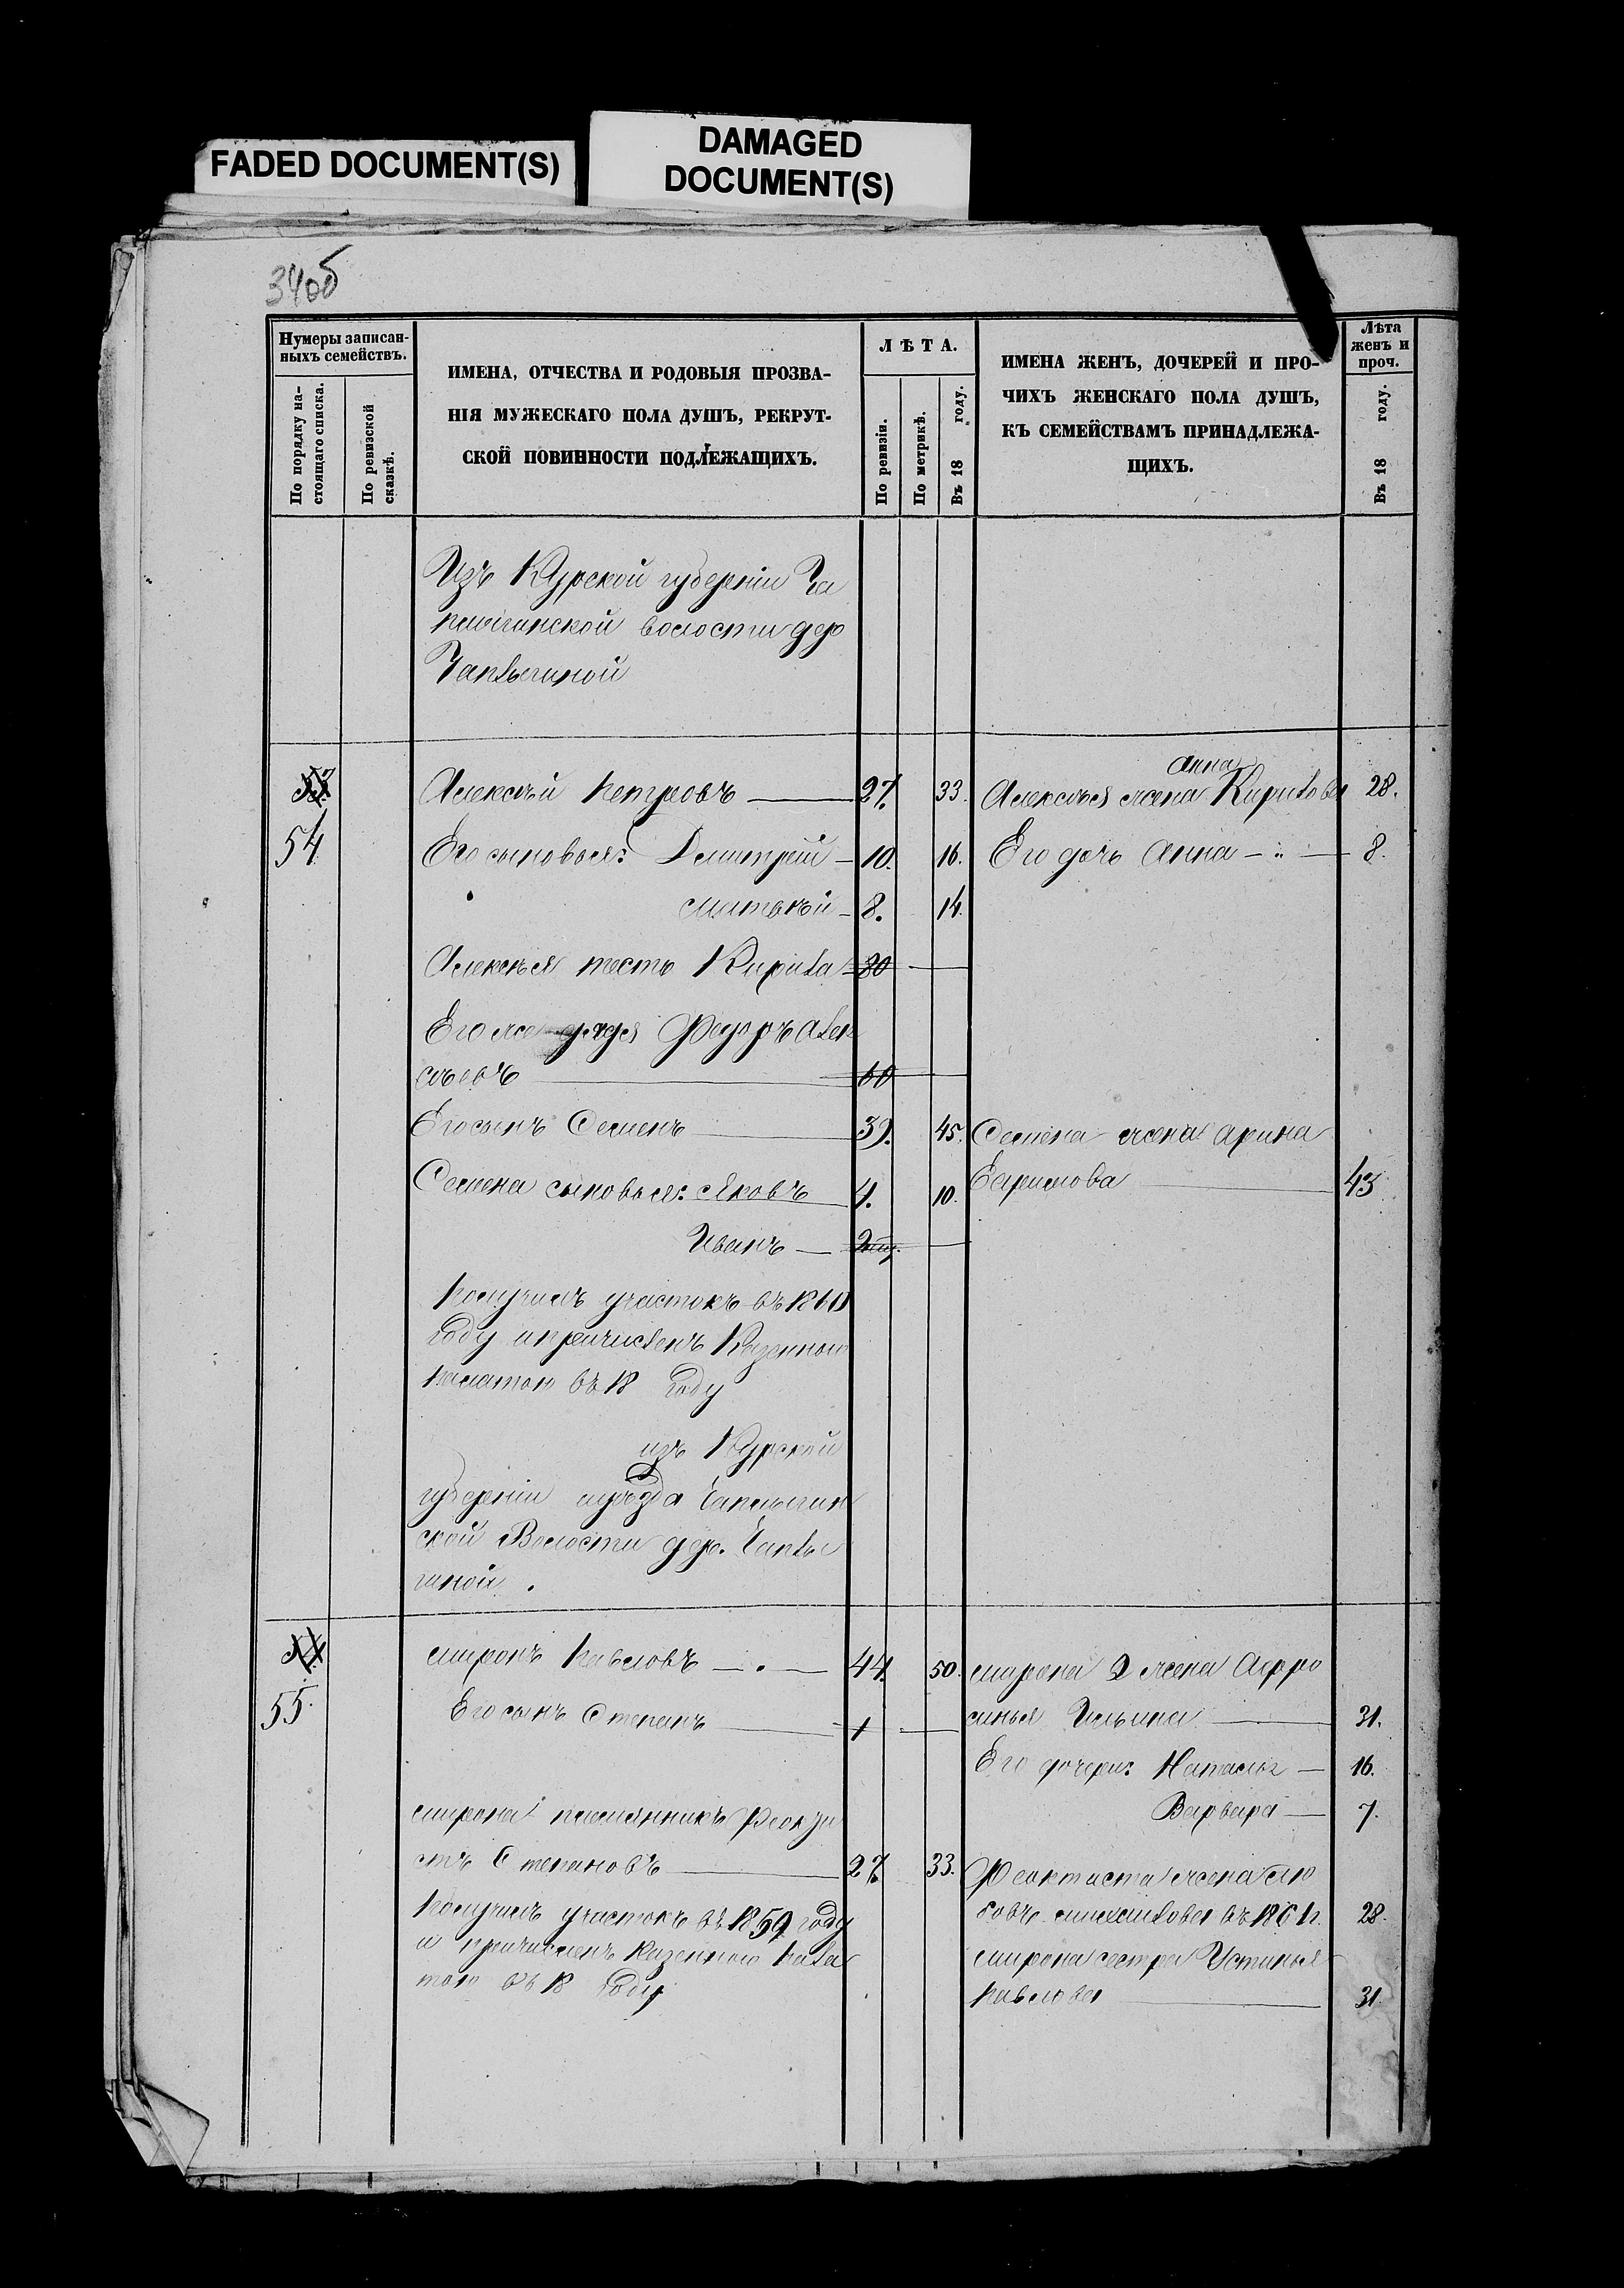 FADED DOCUMENT(S)
DAMAGED
DOCUMENT(S)
340б
Нумеры записан-
ныхъ семействъ.
По порядку на-
стоящаго списка.
По ревизской
сказкѣ.
ИМЕНА, ОТЧЕСТВА И РОДОВЫЯ ПРОЗВА-
НІЯ МУЖЕСКАГО ПОЛА ДУШЪ, РЕКРУТ-
СКОЙ ПОВИННОСТИ ПОДЛЕЖАЩИХЪ.
ЛѢТА.
По ревизіи.
По метрикѣ.
Въ 18 году.
ИМЕНА ЖЕНЪ, ДОЧЕРЕЙ И ПРО-
ЧИХЪ ЖЕНСКАГО ПОЛА ДУШЪ,
КЪ СЕМЕЙСТВАМЪ ПРИНАДЛЕЖА-
ЩИХЪ.
Лѣта
женъ и
проч.
Въ 18 году.
Изъ Курской губерніи Ча
плыгинской волости дер
Чаплыгиной
53
54
Алексѣй Петровъ 27. 33. Алексѣя жена Анна Кирилова 28.
Его сыновья: Дмитрій 10. 16. Его дочь Анна 8.
Матвѣй 8. 14.
Алексѣя тесть Кирила 80
Его же дядя Федоръ Алек
сѣевъ 60
Его сынъ Семенъ 39. 45. Семена жена Арина
Семена сыновья: Яковъ 4. 10. Ефимова 43
Иванъ
Получилъ участокъ въ 1860
году и причисленъ Казенною
палатою въ 18 году
изъ Курской
губерніи уѣзда Чаплыгин
ской Волости дер. Чаплы
гиной.
54
55.
Миронъ Павловъ 44 50. Мирона 2 жена Афро
Его сынъ Степанъ 1 синья Ильина 31.
Его дочери: Наталья 16.
Варвара 7.
Мирона племянникъ Феокти
стъ Степановъ 27 33. Феоктиста жена Лю
Получилъ участокъ въ 1859 году бовь Михайлова въ 1861 г. 28.
и причисленъ Казенною Пала Мирона сестра Устинья
тою въ 18 году Павлова 31.